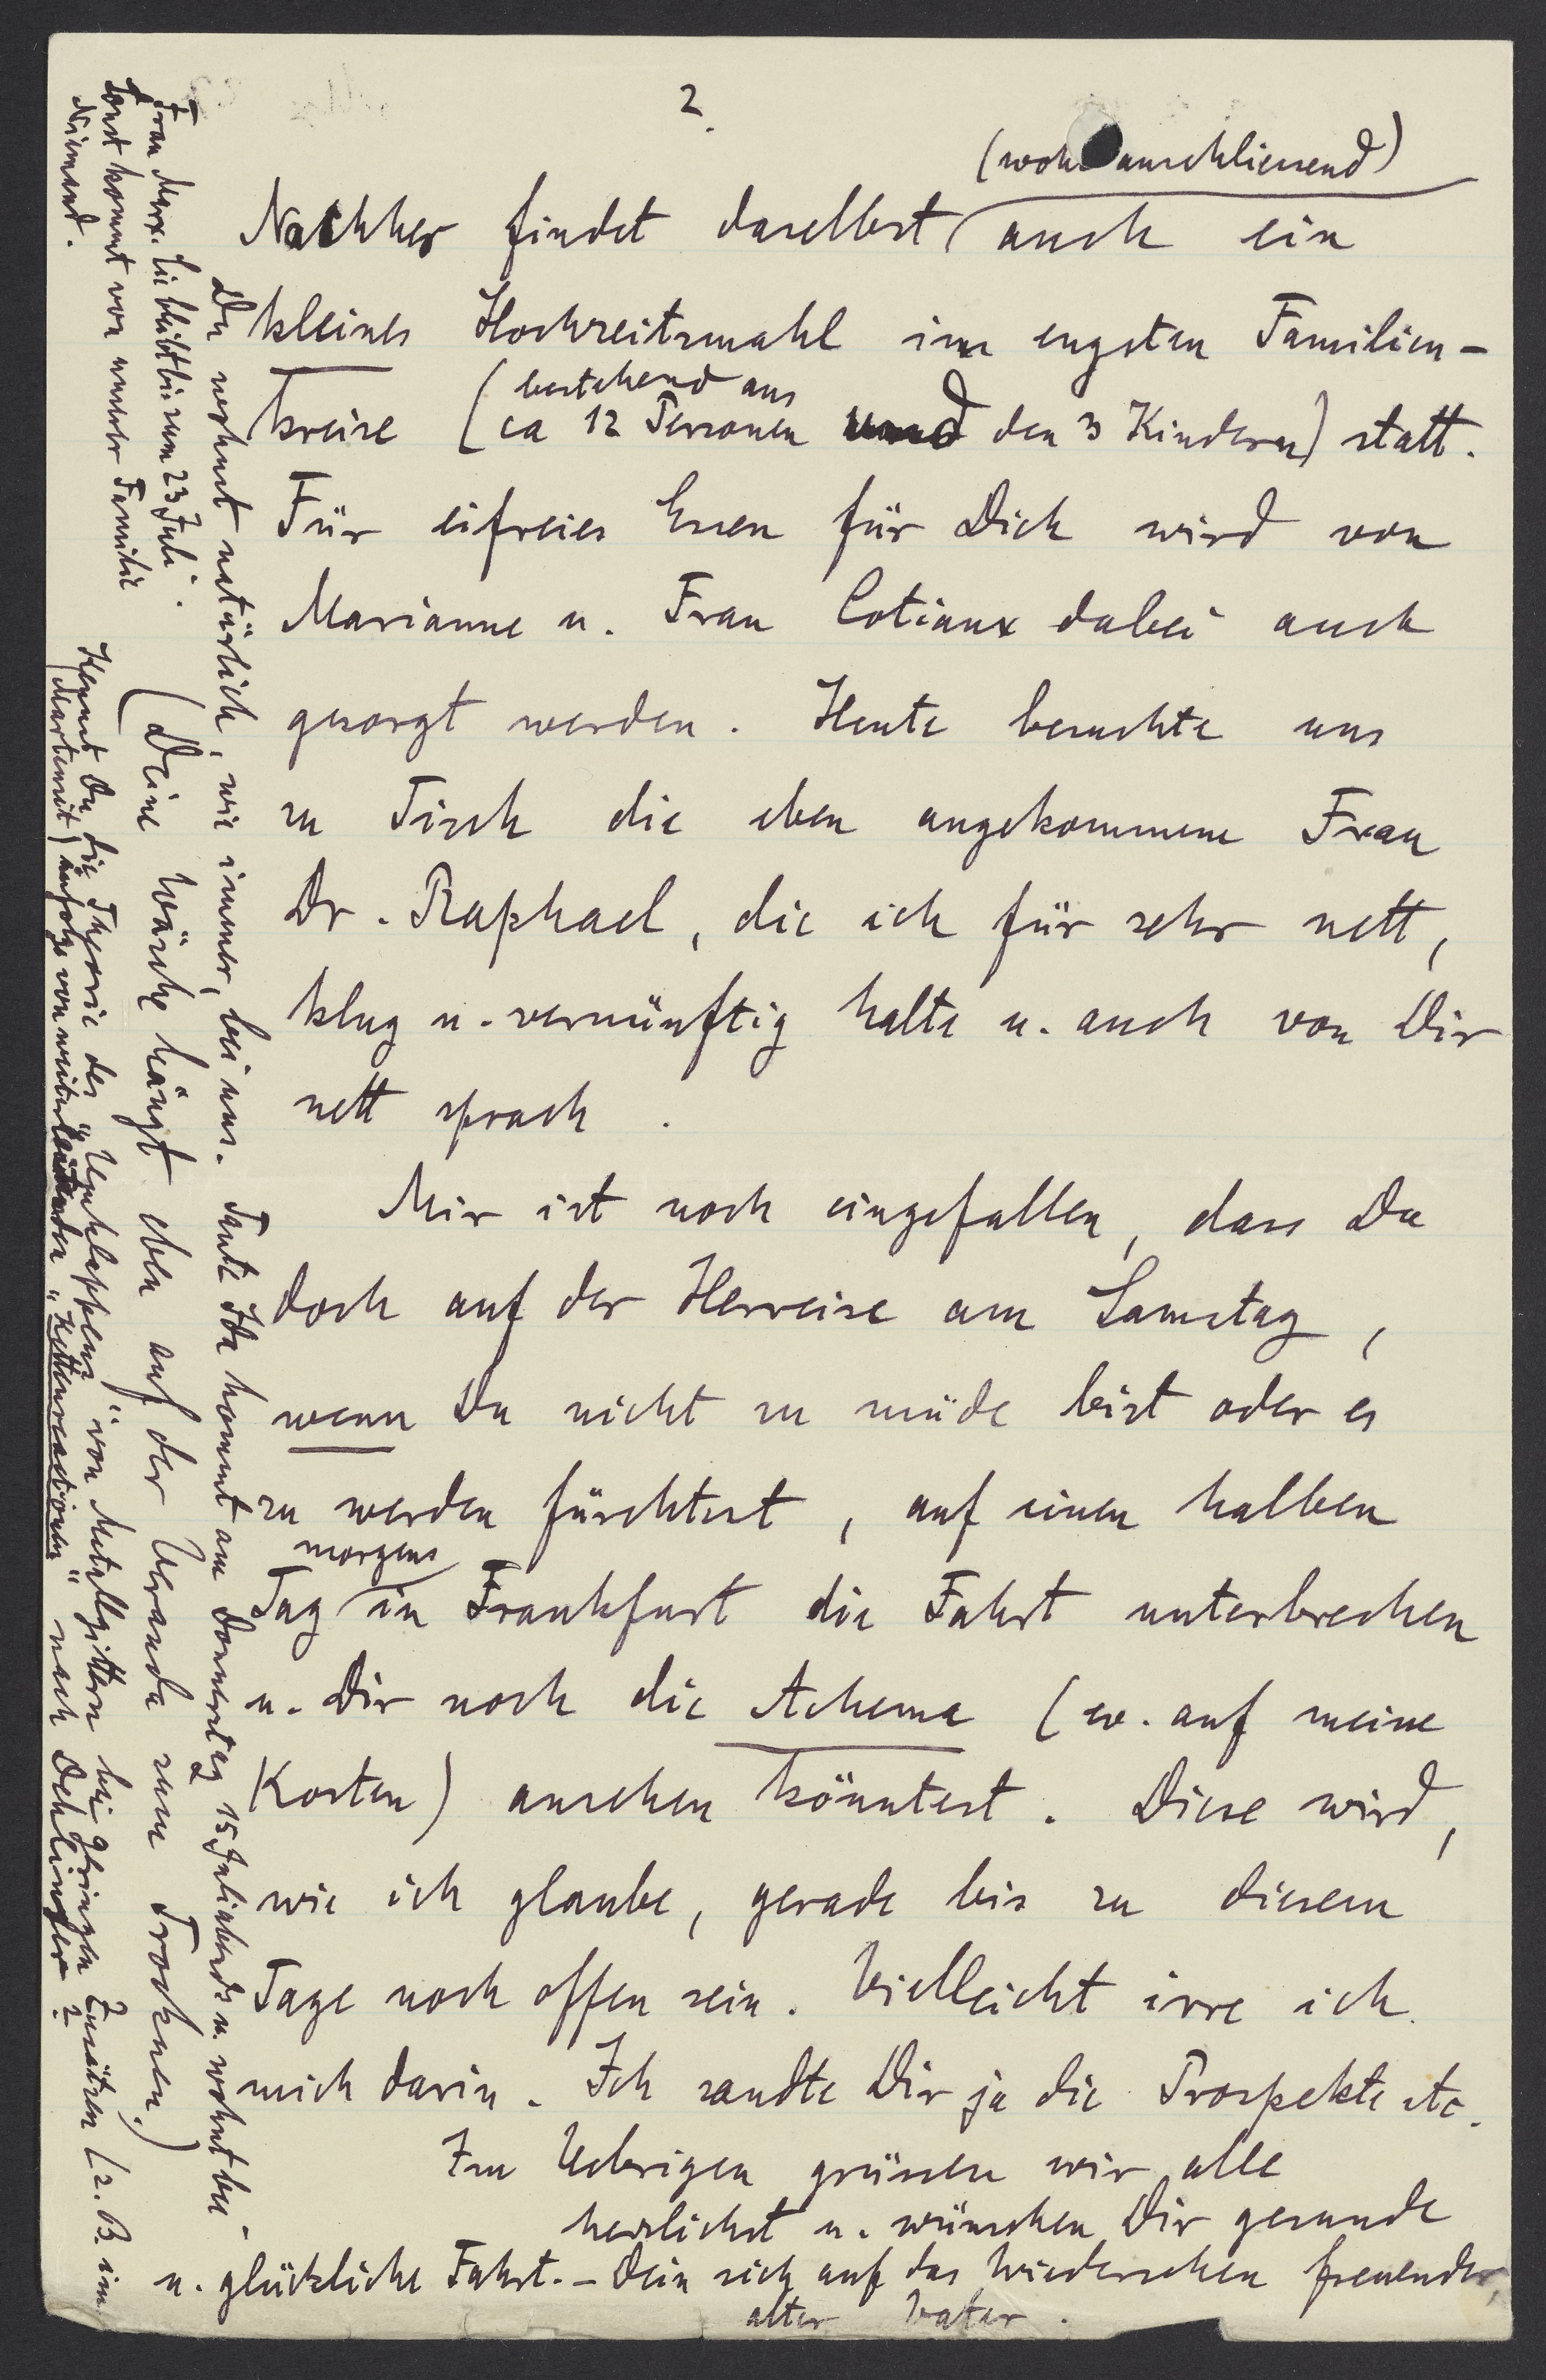 2.
(wohl anschliessend)
Nachher findet daselbst auch ein
kleines Hochzeitsmahl im engsten Familien-
kreise (bestehend aus
ca 12 Personen und den 3 Kindern) statt.
Für eifreies Essen für Dich wird von
Marianne u. Frau Cotiaux dabei auch
gesorgt werden. Heute besuchte uns
zu Tisch die eben angekommene Frau
Dr. Raphael, die ich für sehr nett,
klug u. vernünftig halte u. auch von Dir
nett sprach.
Mir ist noch eingefallen, dass Du
doch auf der Herreise am Samstag,
wenn Du nicht zu müde bist oder es
zu werden fürchtest, auf einen halben
morgens
Tag in Frankfurt die Fahrt unterbrechen
u. Dir noch die Achema (ev. auf meine
Kosten) ansehen könntest. Diese wird,
wie ich glaube, gerade bis zu diesem
Tage noch offen sein. Vielleicht irre ich
mich darin. Ich sandte Dir ja die Prospekte etc.
Im Uebrigen grüssen wir alle
herzlichst u. wünschen Dir gesunde
u. glückliche Fahrt. - Dein sich auf das Wiedersehen freuender,
alter Vater.
Du wohnst natürlich, wie immer, bei uns. Tante Ida kommt am Donnerstag 15 Juli abends u. wohnt bei
Frau Marx. Sie bleibt bis zum 23 Juli.
Sonst kommt von unserer Familie
Niemand.
(Deine Wäsche hängt eben auf der Veranda zum Trocknen.)
Kennst Du die Theorie des "Umklappens" von Metallgittern bei geringen Zusätzen (z. B. im
Martensit) infolge von weiterleitenden "Kettenreactionen" nach Dehlinger?